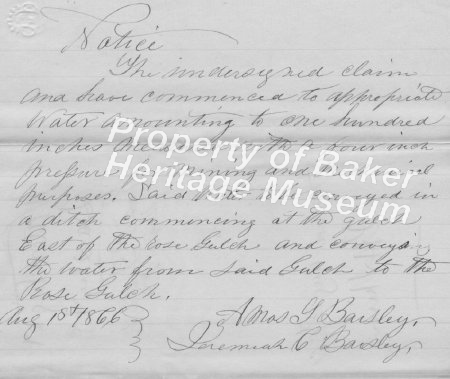 Notice
The undersigned claim
and have commenced to appropriate
Water amounting to one hundred
inches measured with a four inch
pressure for mining and
purposes. Said water to be conveyed in
a ditch commencing at the gulch
East of the rose Gulch and conveying
the water from said Gulch to the
Rose Gulch.
Aug 1st 1866
Amos G Baisley,
Jeremiah C Baisley,
Property of Baker
Heritage Museum